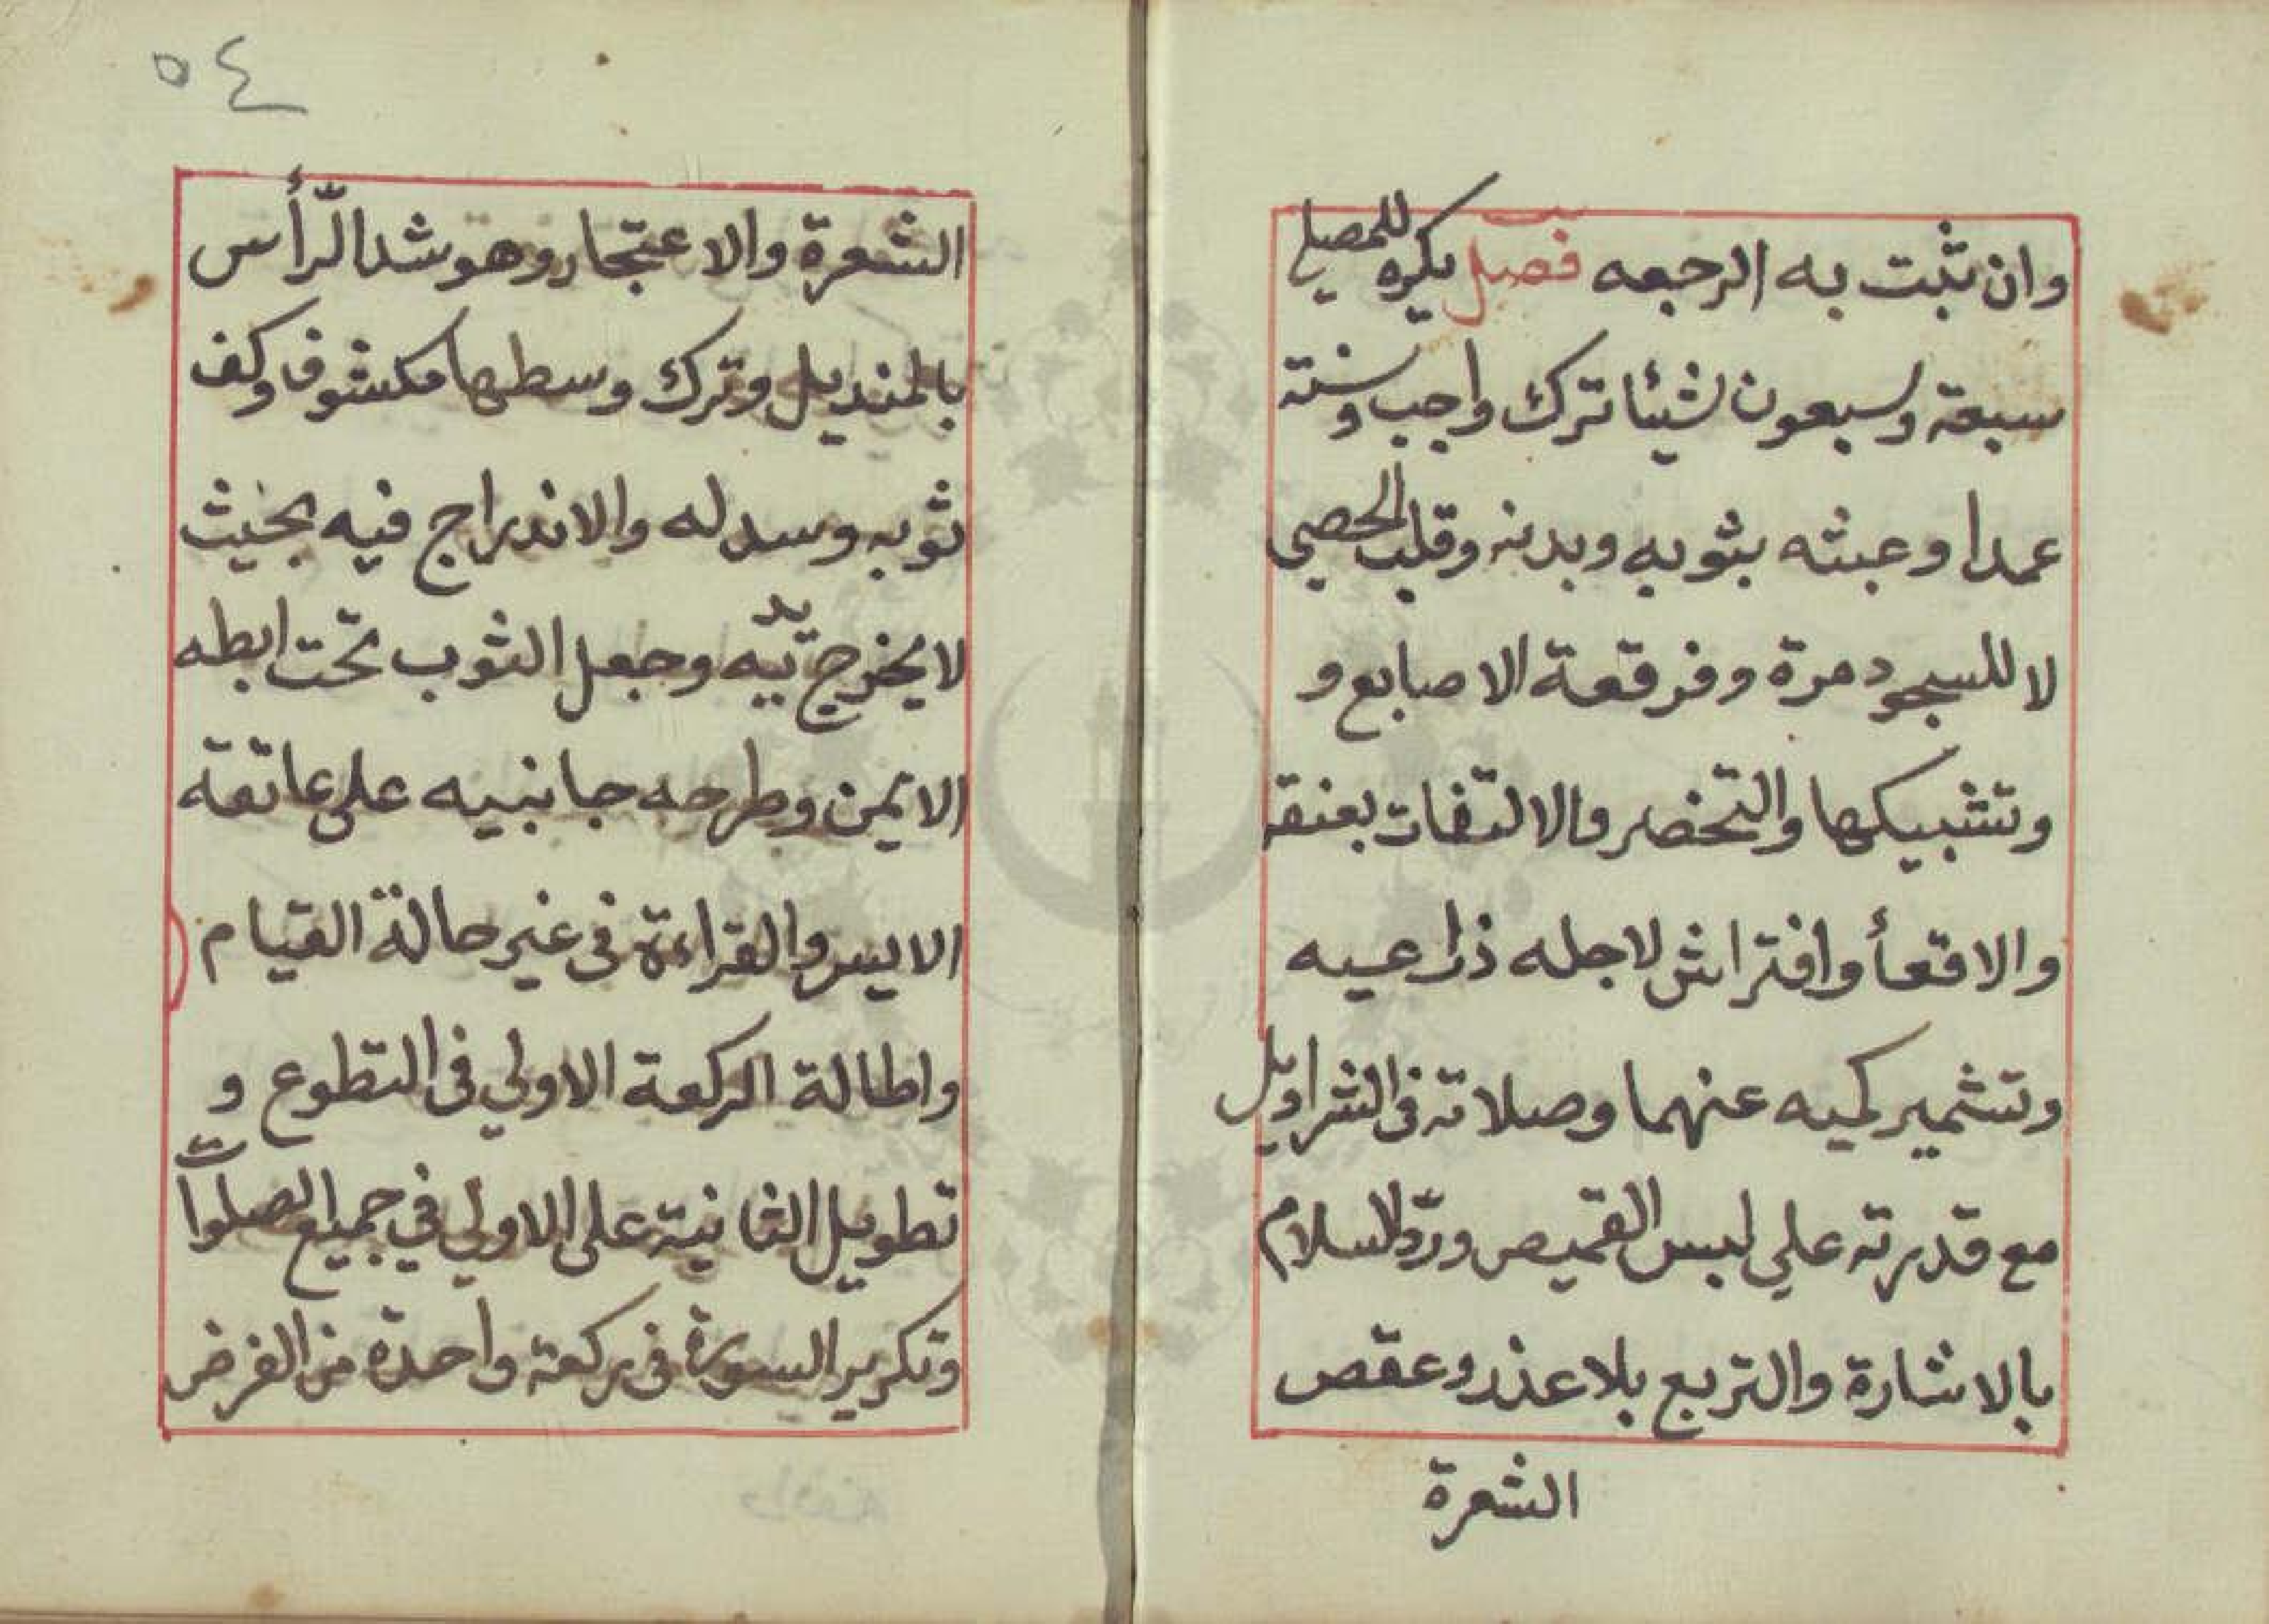 وان ثبت به الرجعه فصل يكره للمصلي
سبعة وسبعون شيئا ترك واجب وسنته
عمدا وعبثه بثوبه وبدنه وقلب الحصى
لا للسجود مرة وفرقعة الاصابع و
وتشبيكها والتخصر والالتفات بعنقه
والاقعأ وافتراش لاجله ذراعيه
وتشمير كميه عنهما وصلاته فى الشراويل
مع قدرته علي لبس القميص وردّ السلام
بالاشارة والتربع بلا عذر وعقص
الشعرة
٥٤
الشعرة والاعتجار وهو شد الرّأس
بالمنديل وترك وسطها مكشوفا وكف
ثوبه وسدله والاندراج فيه بحيث
لا يخرج يديّه وجعل الثوب تحت ابطه
الايمن وطرحه جانبيه على عاتقه
الايسر والقراءة فى غير حالة القيام
واطالة الركعة الاولي فى التطوع و
تطويل الثانية على الاولي في جميع الصلوات
وتكرير السورة فى ركعة واحدة من الفرض